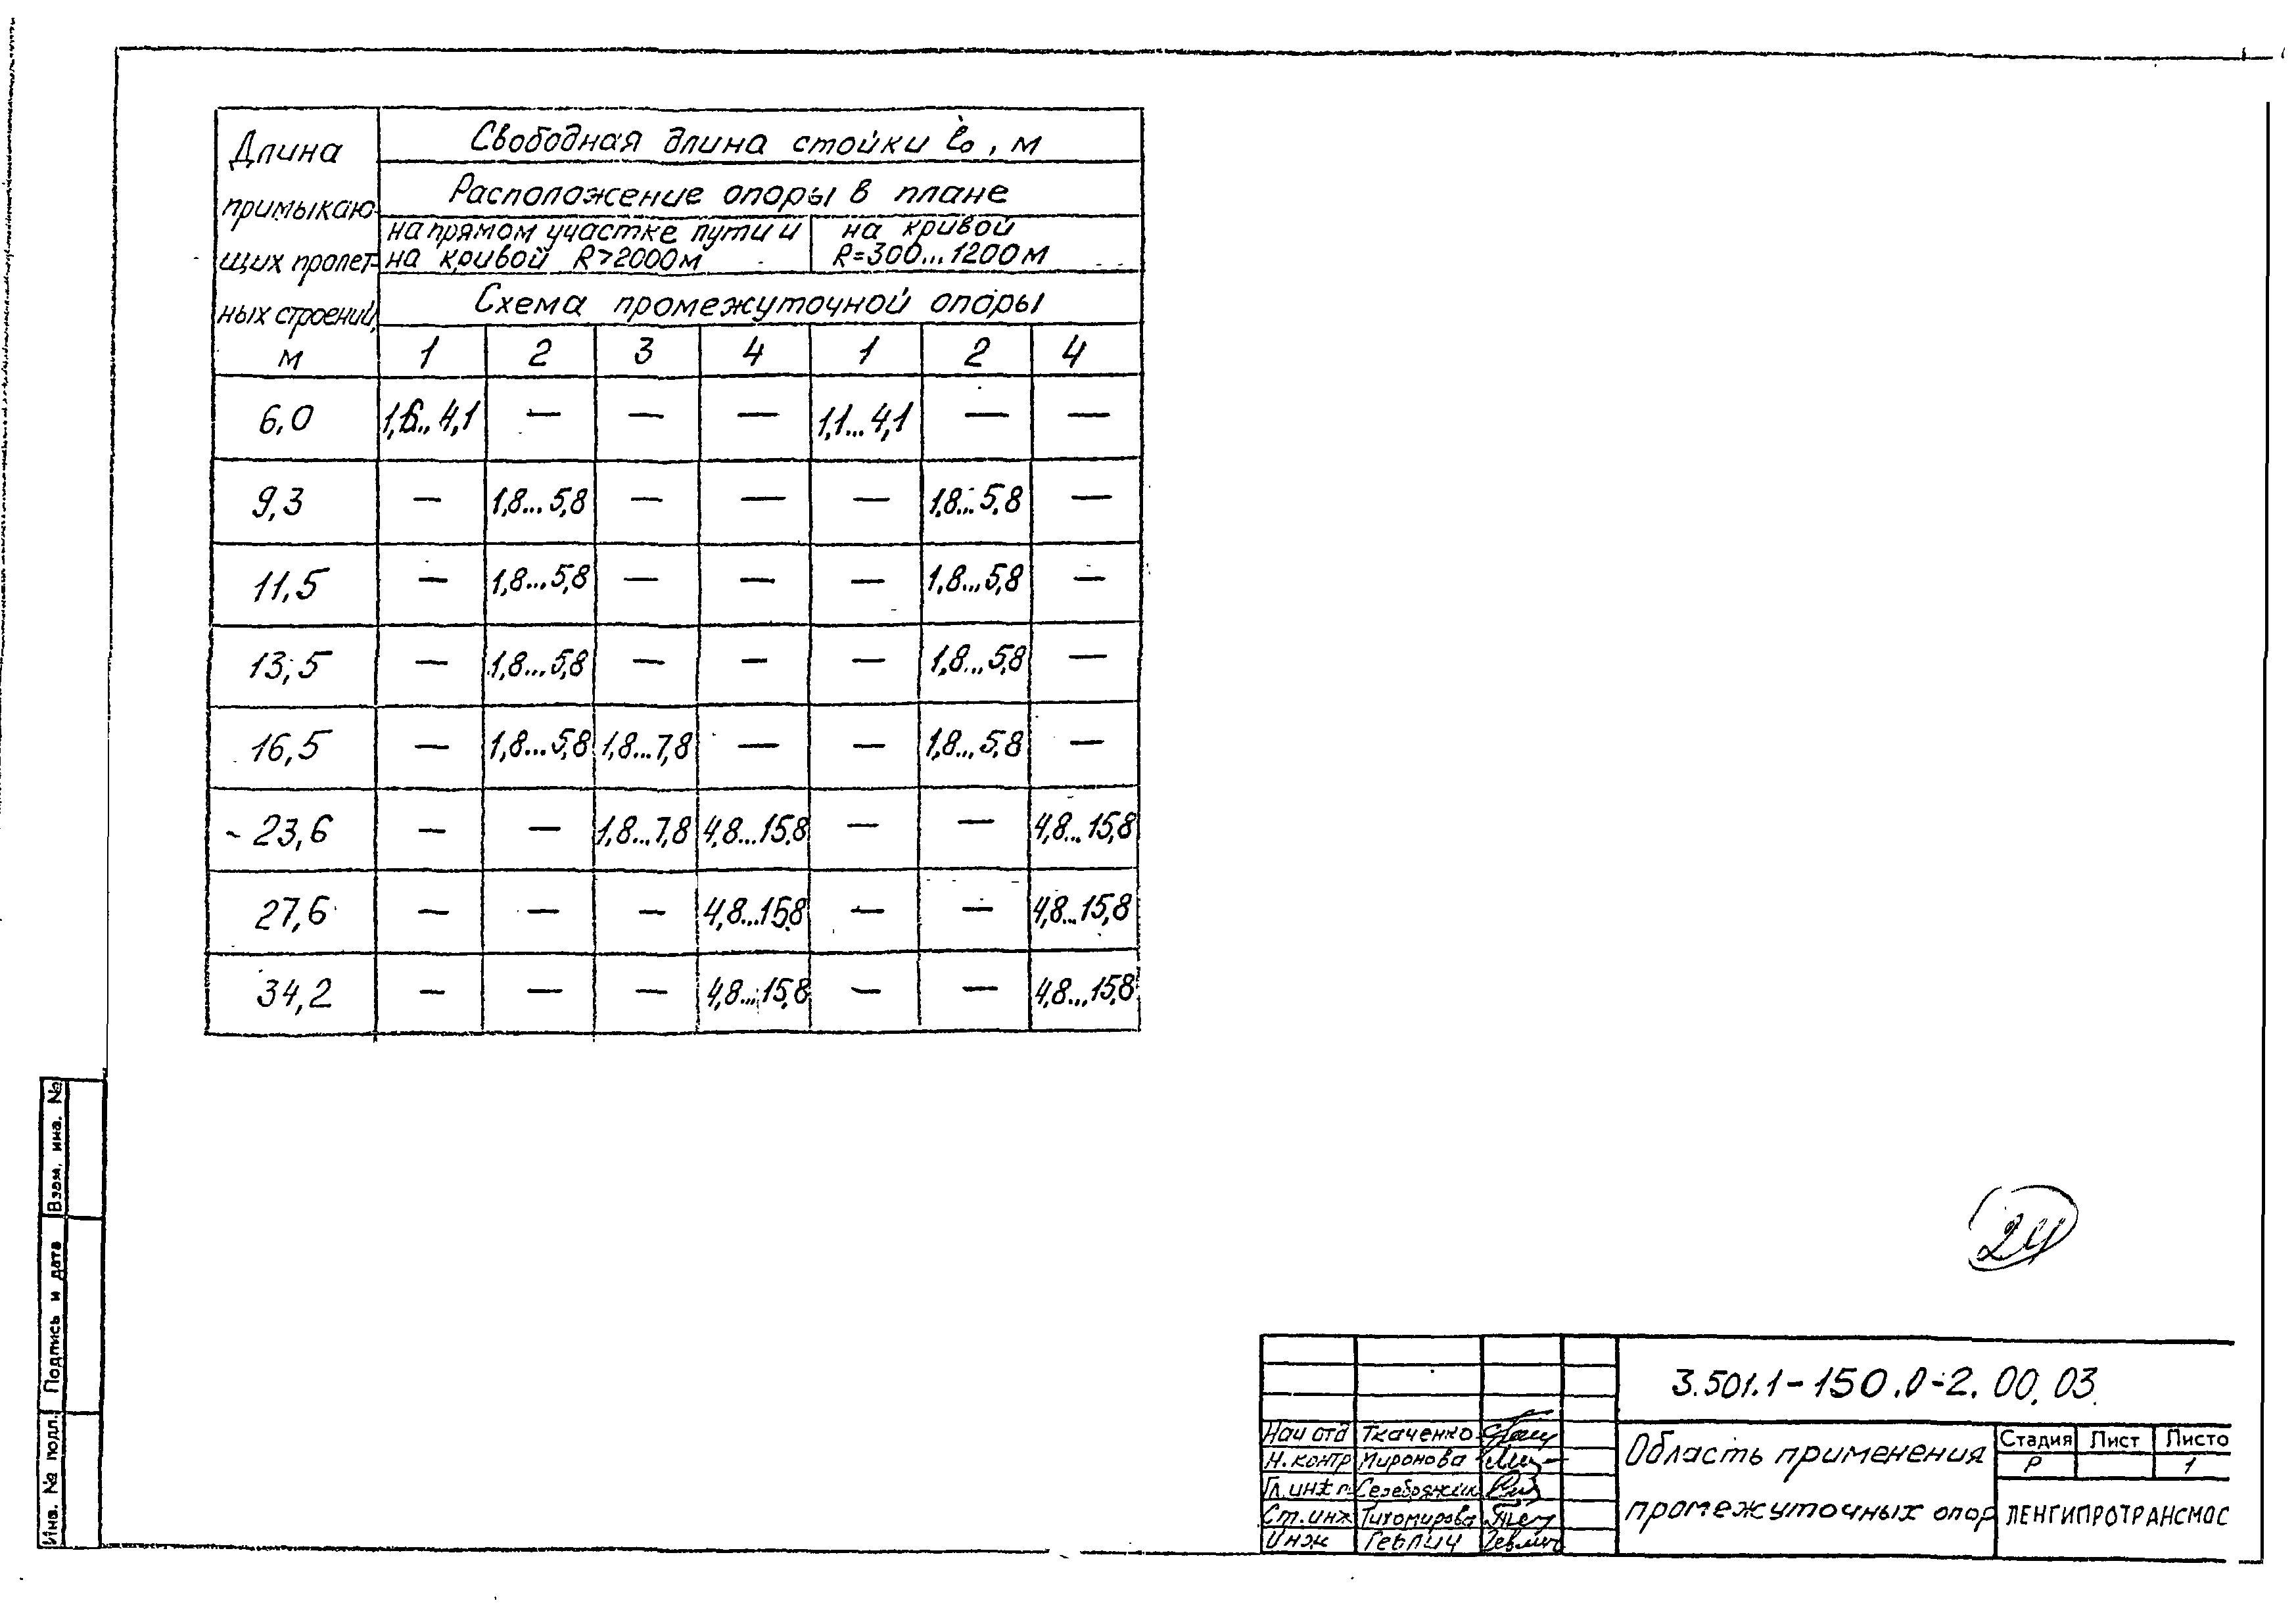 Длина
примыкаю-
щих пролет-
ных строений,
м
Свободная длина стойки ℓ₀, м
Расположение опоры в плане
на прямом участке пути и
на кривой R>2000м
на кривой
R=300...1200м
Схема промежуточной опоры
1 2 3 4 1 2 4
6,0 — — — 1,1...4,1 — —
9,3 — 1,8...5,8 — — — 1,8...5,8 —
11,5 — 1,8...5,8 — — — 1,8...5,8 —
13,5 — 1,8...5,8 — — — 1,8...5,8 —
16,5 — 1,8...5,8 1,8...7,8 — — 1,8...5,8 —
23,6 — — 1,8...7,8 4,8...15,8 — — 4,8...15,8
27,6 — — — 4,8...15,8 — — 4,8...15,8
34,2 — — — 4,8...15,8 — — 4,8...15,8
Взам. инв. №
Подпись и дата
Инв. № подл.
24
3.501.1-150.0-2.00.03
Нач отд Ткаченко
Н.контр Миронова
Гл.инж п
Ст.инж Тихомирова
Инж Гевлич Гевлич
Область применения
промежуточных опор
Стадия Лист Листо
Р 1
ЛЕНГИПРОТРАНСМОС